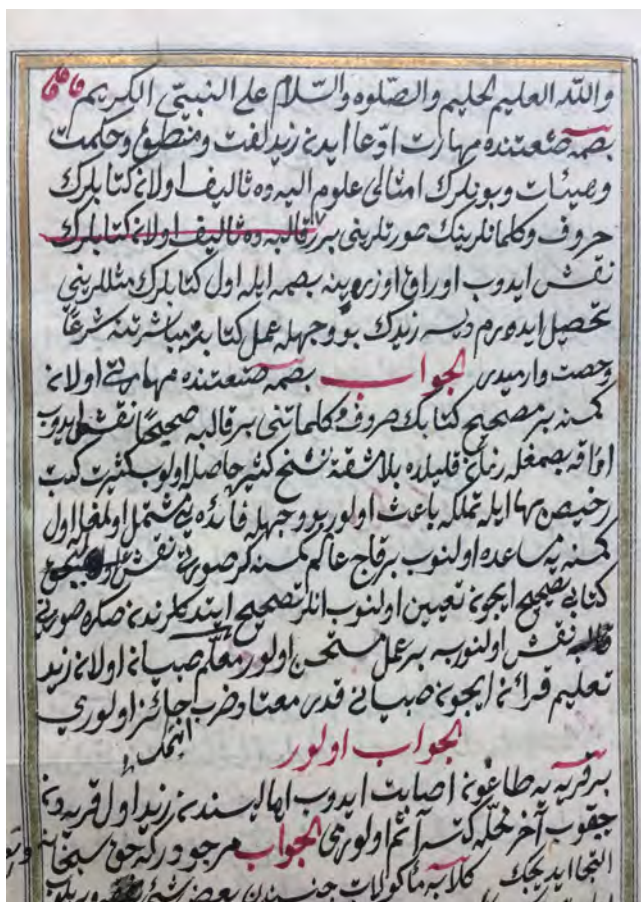 والله العليم الحليم والصلوه والسلام على النبيى الكريم
بصمه صنعتنده مهارت ادّعا ايدن زيد لغت ومنطق وحكمت
وهيئات وبونلرك امثالى علوم اليه وه ثاليف اولان كتابلرك
حروف وكلماتلرينك صورتلرينى برر قالبه وه ثاليف اولان كتابلرك
نقش ايدوب اوراق اوزرينه بصمه ايله اول كتابلرك مثللرينى
تحصيل ايده رم ديسه زيدك بو وجهله عمل كتابه مباشرتنه شرعًا
رحصت وارميدر الجواب بصمه صنعتنده مهارتى اولان
كمسنه بر مصحيح كتابك حروف وكلماتنى بر قالبه صحيحًا نقش ايدوب
اوراقه بصمغله زمان قليلده بلا مشقة نسخ كثيره حاصله اولوب كثرت كتب
رخيص بها ايله تملكه باعث اولور بو وجهله فائده يى مشتمل اولمغله اول
كمسنه يه مساعده اولنوب بر قاج عالم كمسنه لر صورتى نقش
كتابى تصحيح ايجون تعيين اولنوب انلر تصحيح ايتدكلرندن صكره صورتى
نقش اولنورسه بر عمل مستحسن اولور معلّم صبيان اولان زيد
تعليم قرائن ايجون صبيانى قدر معتاد ضرب جائز اولورمى
الجواب اولور
بر قريه يه طاعون اصابت ايدوب اهاليسندن زيد اول قريه دن
جقوب آخر محلّه كتسه آثم اولورمى الجواب مرجودركه حق سبحانه
التجا ايديجك كلابه مأكولات جنسندن بعض شئ